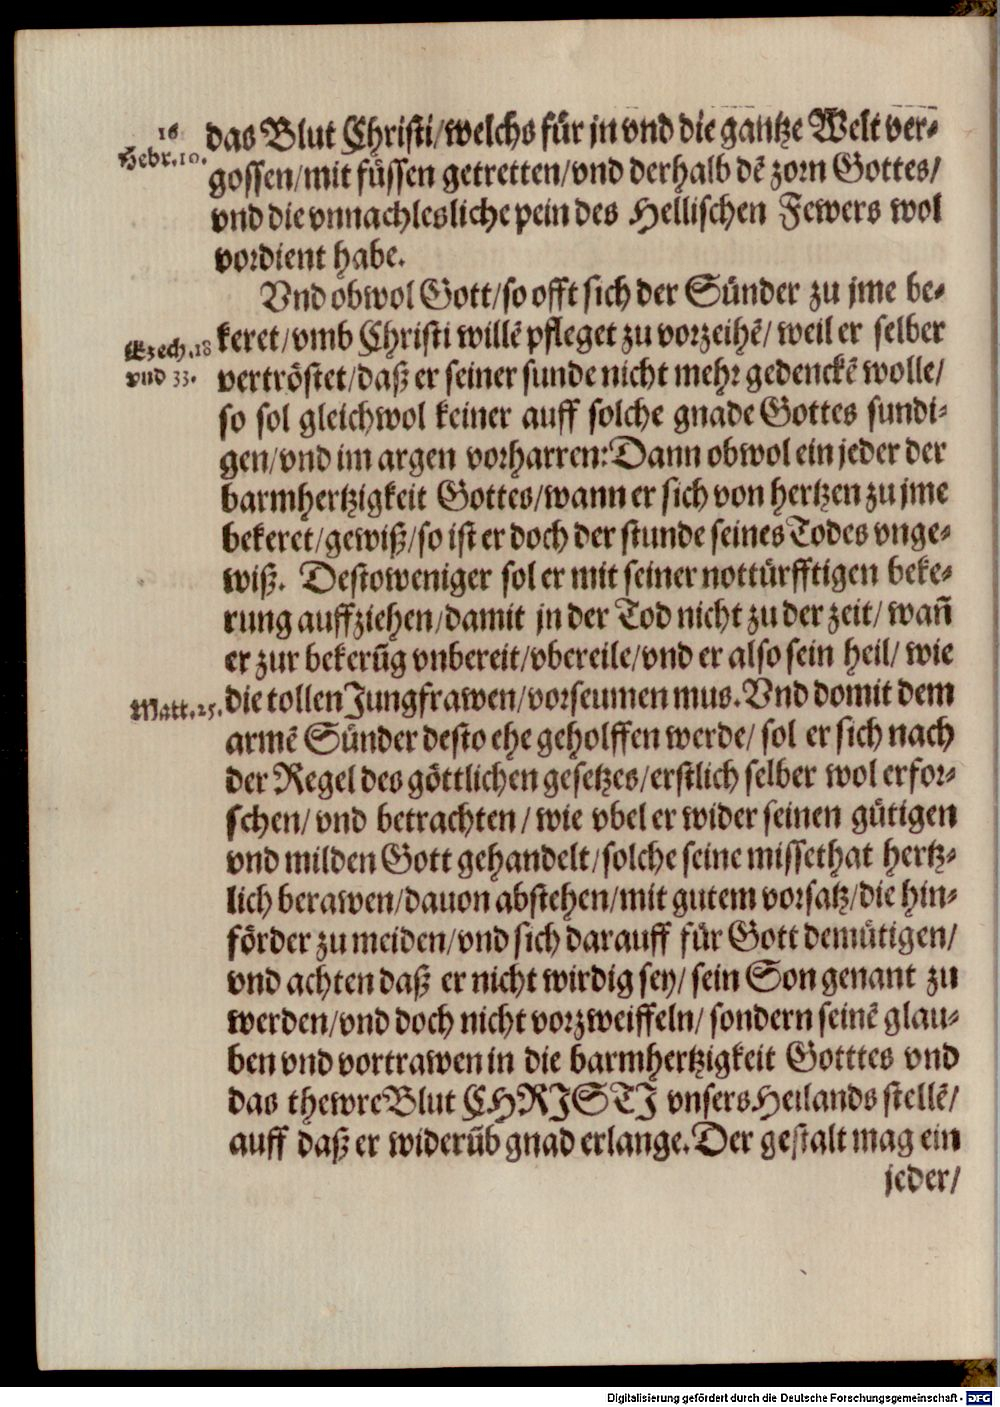 16
Hebr.10.
das Blut Christi/welchs für jn vnd die gantze Welt ver-
gossen/mit füssen getretten/vnd derhalb dē zorn Gottes/
vnd die vnnachlesliche pein des Hellischen Fewers wol
vordient habe.
Vnd obwol Gott/so offt sich der Sünder zu jme be-
Ezech.18
vnd 33.
keret/vmb Christi willē pfleget zu vorzeihē/ weil er selber
vertröstet/daß er seiner sunde nicht mehr gedenckē wolle/
so sol gleichwol keiner auff solche gnade Gottes sundi-
gen/vnd im argen vorharren: Dann obwol ein jeder der
barmhertzigkeit Gottes/wann er sich von hertzen zu jme
bekeret/gewiß/so ist er doch der stunde seines Todes vnge-
wiß. Destoweniger sol er mit seiner nottürfftigen beke-
rung auffziehen/damit jn der Tod nicht zu der zeit/ wañ
er zur bekerūg vnbereit/vbereile/vnd er also sein heil/ wie
Matt.25.
die tollen Jungfrawen/vorseumen mus. Vnd domit dem
armē Sünder desto ehe geholffen werde/ sol er sich nach
der Regel des göttlichen gesetzes/erstlich selber wol erfor-
schen/ vnd betrachten/ wie vbel er wider seinen gütigen
vnd milden Gott gehandelt/solche seine missethat hertz-
lich berawen/dauon abstehen/mit gutem vorsatz/die hin-
förder zu meiden/vnd sich darauff für Gott demütigen/
vnd achten daß er nicht wirdig sey/ sein Son genant zu
werden/vnd doch nicht vorzweiffeln/ sondern seinē glau-
ben vnd vortrawen in die barmhertzigkeit Gotttes vnd
das thewre Blut CHRISTI vnsers Heilands stellē/
auff daß er widerūb gnad erlange. Der gestalt mag ein
jeder/
Digitalisierung gefördert durch die Deutsche Forschungsgemeinschaft - DFG